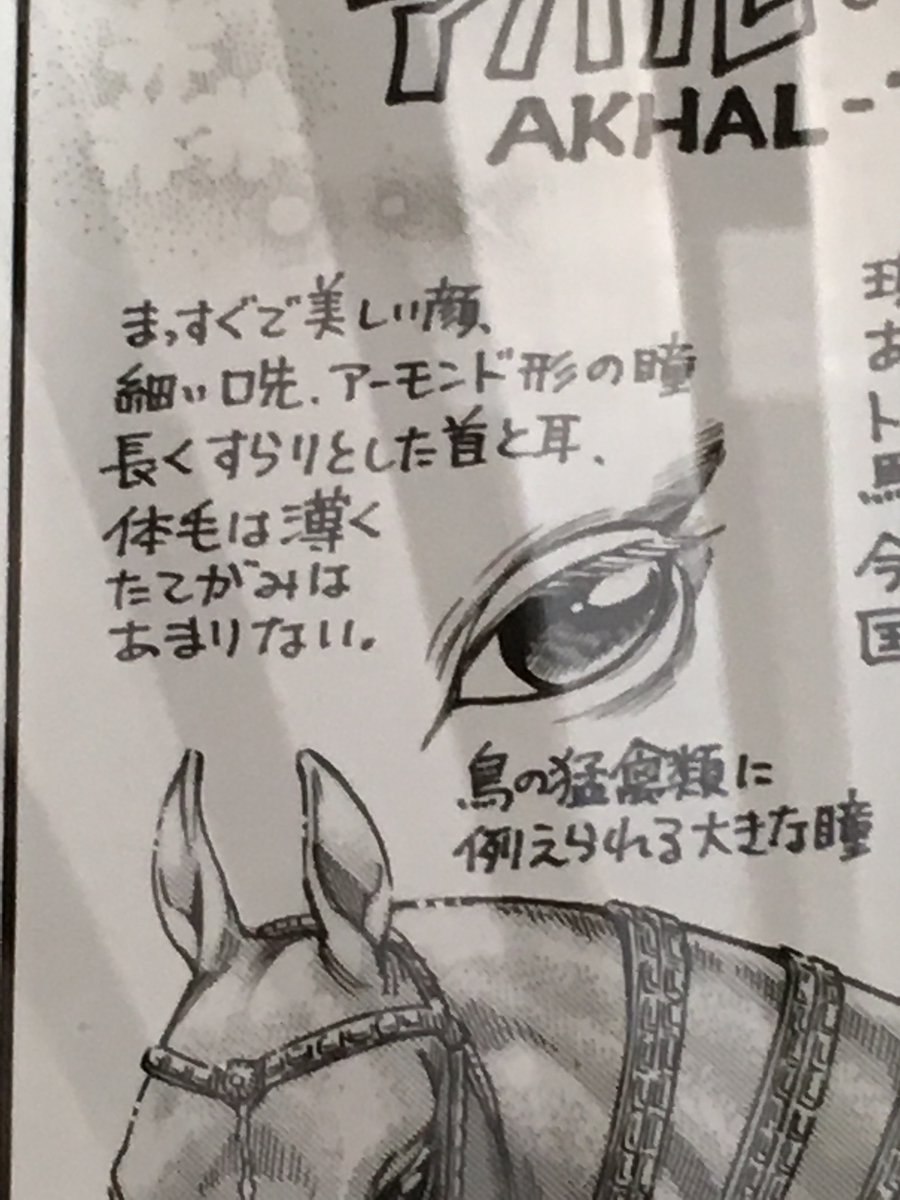 AKHAL-
まっすぐで美しい顔、
細い口先、アーモンド形の瞳
長くすらりとした首と耳、
体毛は薄く
たてがみは
あまりない。
鳥の猛禽類に
例えられる大きな瞳
お
ト
馬
今
国